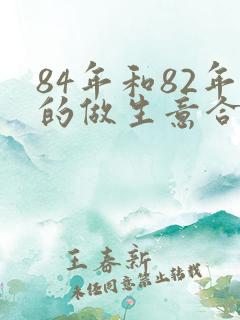 84年和82年
的做生意合
王春新
未经同意禁止转载